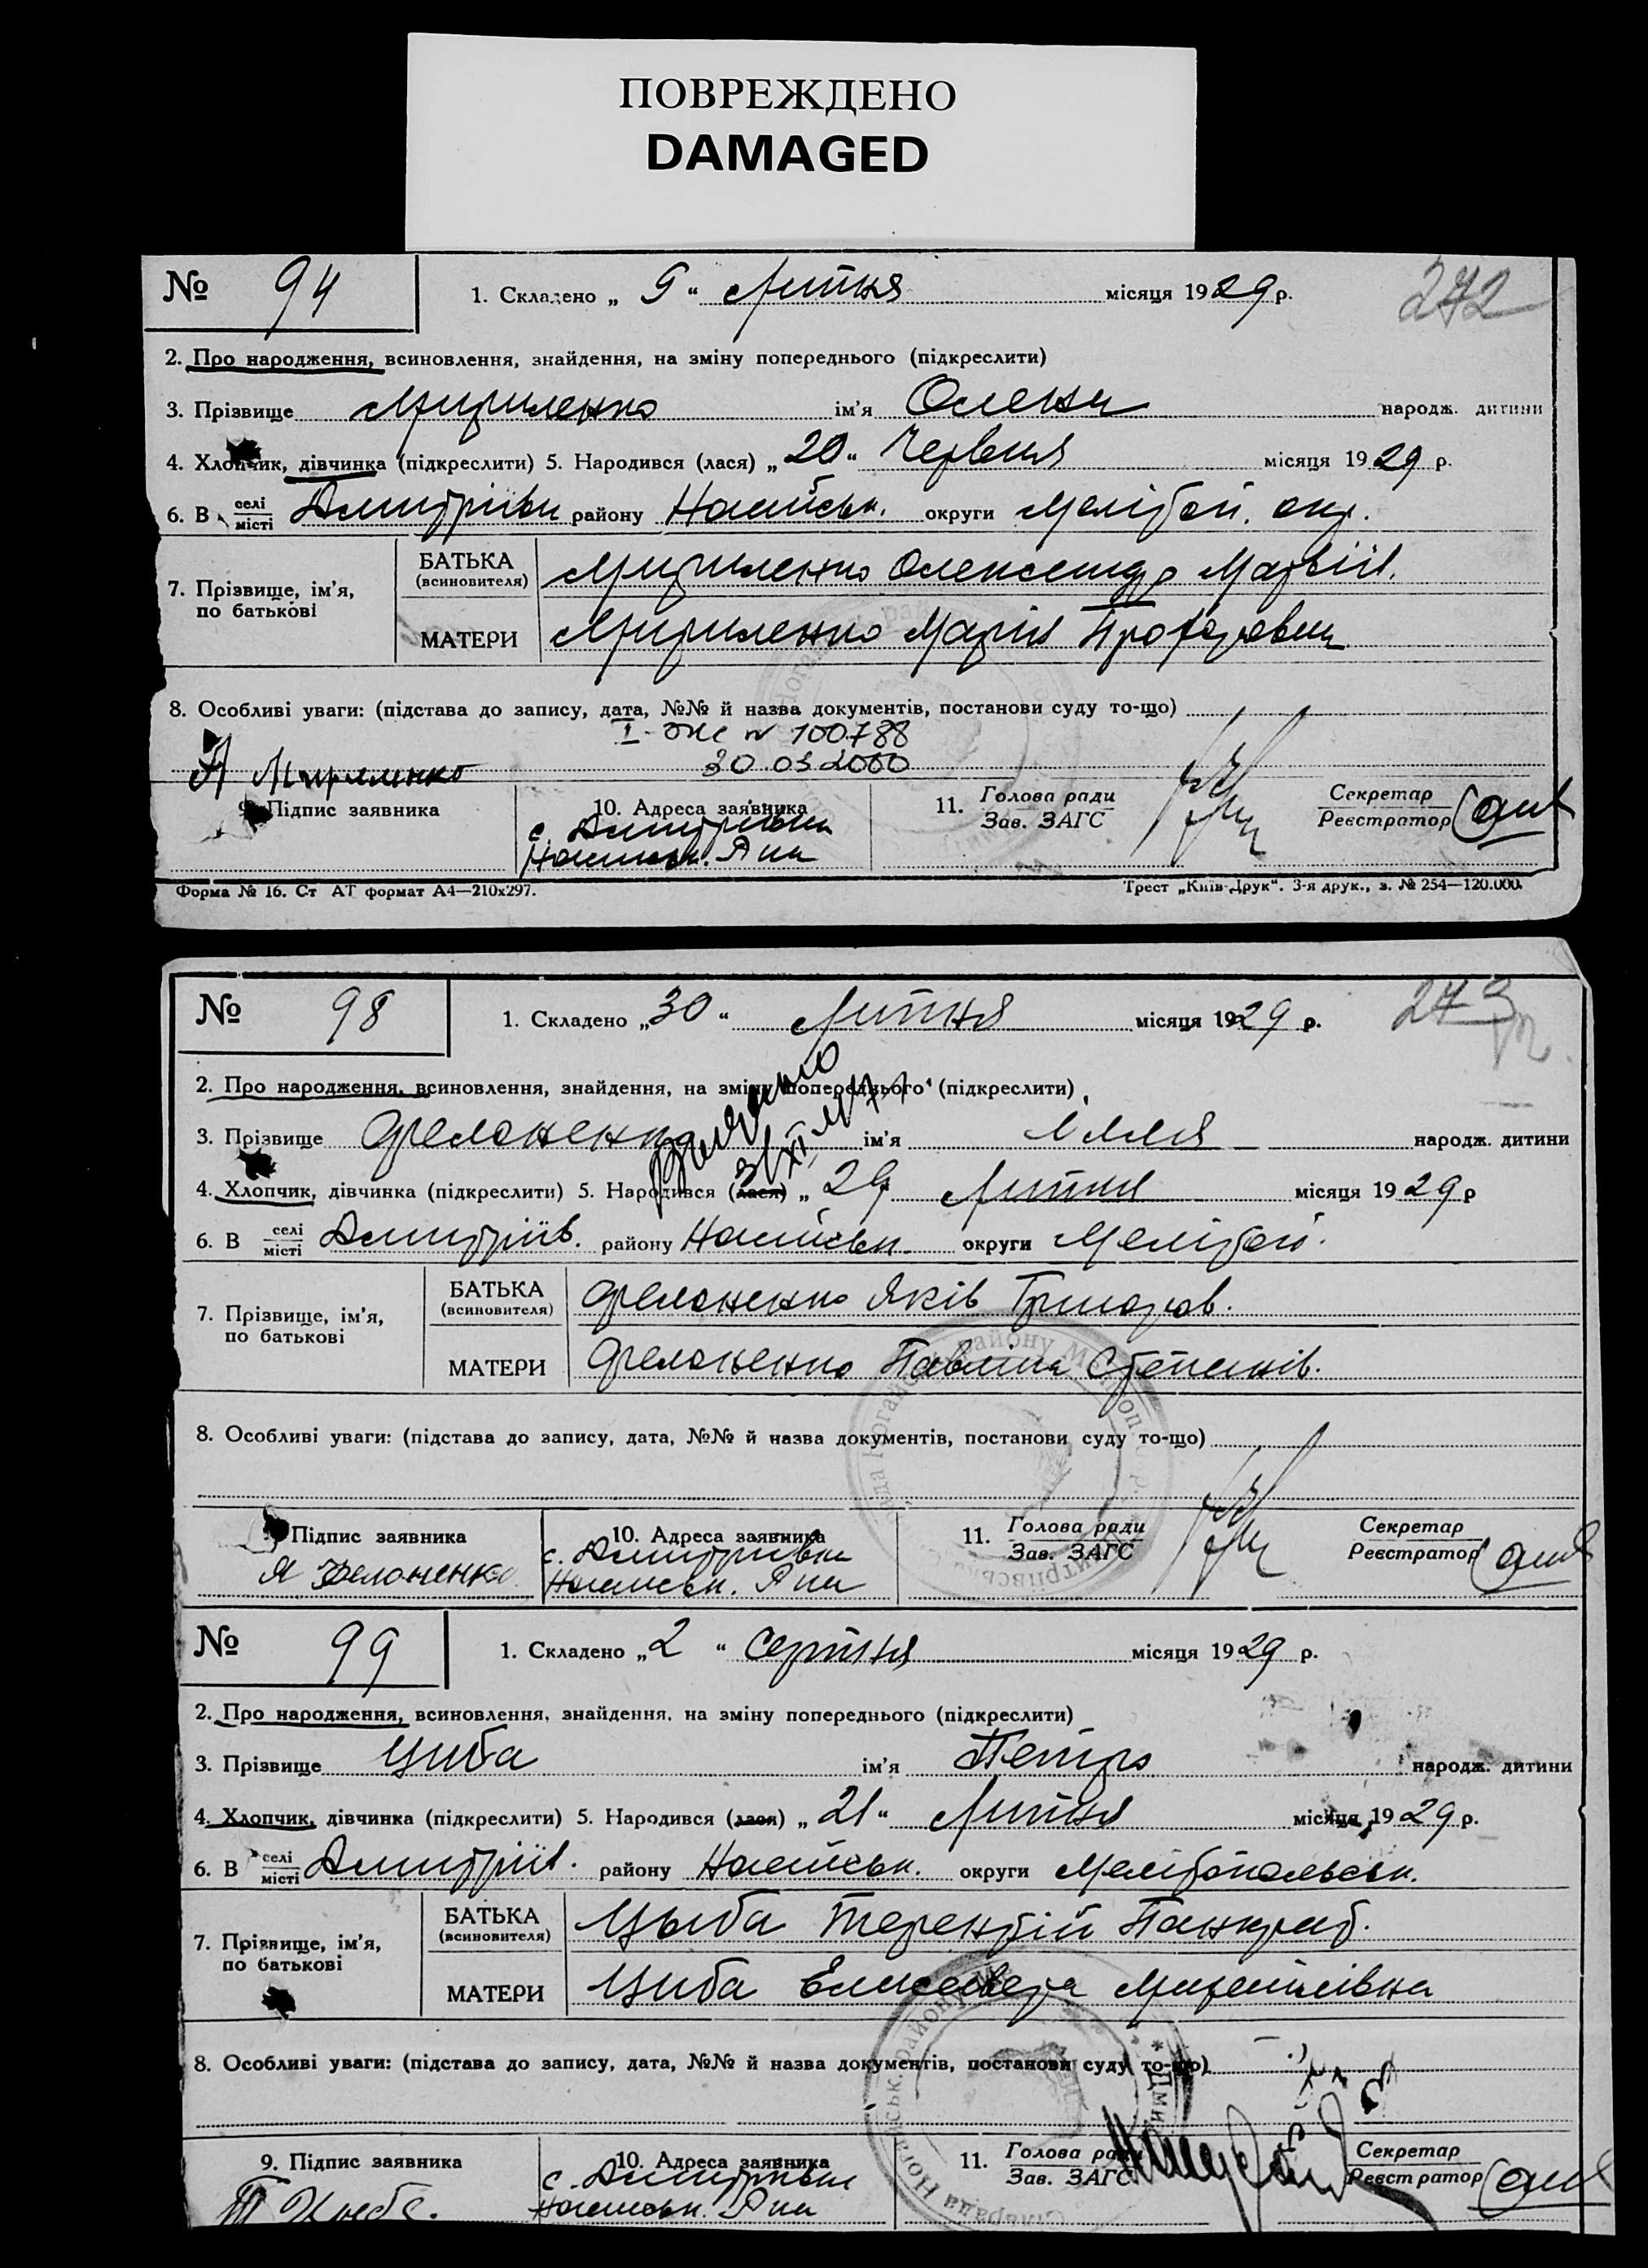 ПОВРЕЖДЕНО
DAMAGED
№ 94 1. Складено „ 9 “ Липня місяця 1929 р. 272
2. Про народження, всиновлення, знайдення, на зміну попереднього (підкреслити)
3. Прізвище Мириленко ім’я Олена народж. дитини
4. Хлопчик, дівчинка (підкреслити) 5. Народився (лася) „ 20 “ Червня місяця 1929 р.
6. В селі місті Дмитрівка району Ногайськ. округи Мелітоп. окр.
7. Прізвище, ім’я, по батькові
БАТЬКА (всиновителя) Мириленко Олександр Матвійв.
МАТЕРИ Мириленко Марія
8. Особливі уваги: (підстава до запису, дата, №№ й назва документів, постанови суду то-що)
I- № 100788
30 03 2000
А Мириленко
9. Підпис заявника 10. Адреса заявника 11. Голова ради Зав. ЗАГС Секретар Реєстратор
с. Дмитрівка
Ногайськ. Р-на
Форма № 16. Ст АТ формат А4—210х297. Трест „Київ-Друк“. 3-я друк., з. № 254—120.000.
№ 98 1. Складено „ 30 “ Липня місяця 1929 р. 273
2. Про народження, всиновлення, знайдення, на зміну попереднього (підкреслити)
3. Прізвище ім’я Ілля народж. дитини
4. Хлопчик, дівчинка (підкреслити) 5. Народився (лася) „ 29 Липня місяця 1929 р
6. В селі місті Дмитрів. району Ногайськ. округи Мелітоп.
7. Прізвище, ім’я, по батькові
БАТЬКА (всиновителя) Яків
МАТЕРИ Павліна Степанів.
8. Особливі уваги: (підстава до запису, дата, №№ й назва документів, постанови суду то-що)
9. Підпис заявника 10. Адреса заявника 11. Голова ради Зав. ЗАГС Секретар Реєстратор
с. Дмитрівка
Ногайськ. Р-на
№ 99 1. Складено „ 2 “ серпня місяця 1929 р.
2. Про народження, всиновлення, знайдення, на зміну попереднього (підкреслити)
3. Прізвище Циба ім’я Петро народж. дитини
4. Хлопчик, дівчинка (підкреслити) 5. Народився (лася) „ 21 “ Липня місяця 1929 р.
6. В селі місті Дмитрів. району Ногайськ. округи Мелітопольськ.
7. Прізвище, ім’я, по батькові
БАТЬКА (всиновителя) Цыба Терентій Панкрат.
МАТЕРИ Циба Елисавета Михайлівна
8. Особливі уваги: (підстава до запису, дата, №№ й назва документів, постанови суду то-що)
9. Підпис заявника 10. Адреса заявника 11. Голова ради Зав. ЗАГС Секретар Реєстратор
с. Дмитрівка
Т Цыба. Ногайськ. Р-на